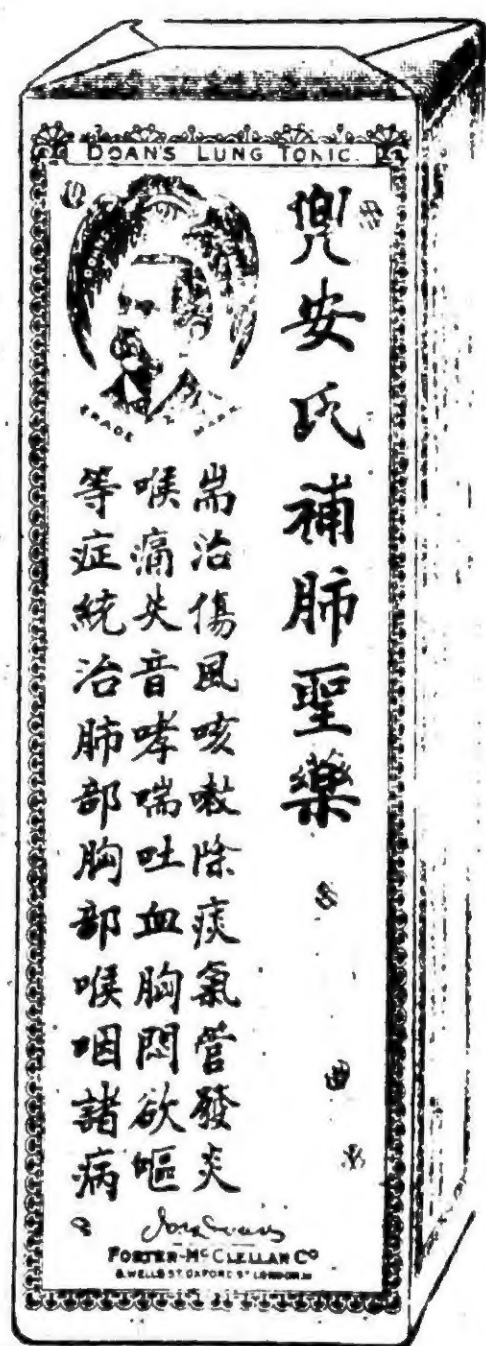 DOAN'S LUNG TONIC.
兜安氏補肺聖藥
TRADE MARK
耑治傷風咳嗽除痰氣管發炎
喉痛失音哮喘吐血胸悶欲嘔
等症統治肺部胸部喉咽諸病
FOSTER-McCLELLAN Co
8, WELLS ST. OXFORD ST LONDON.W